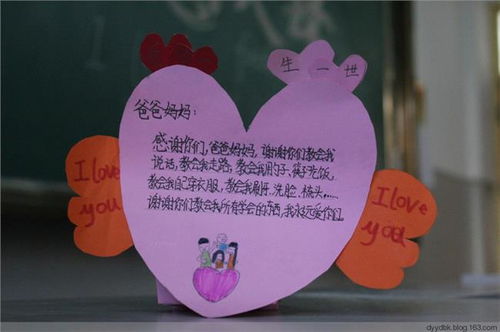 生一世
爸爸妈妈：
感谢你们,爸爸妈妈,谢谢你们教会我
说话,教会我走路,教会我用勺子、筷子吃饭,
教会我自己穿衣服,教会我刷牙、洗脸、梳头……
谢谢你们教会我所有学会的东西,我永远爱你们。
I love
you
I love
you
dyydbk.blog.163.com